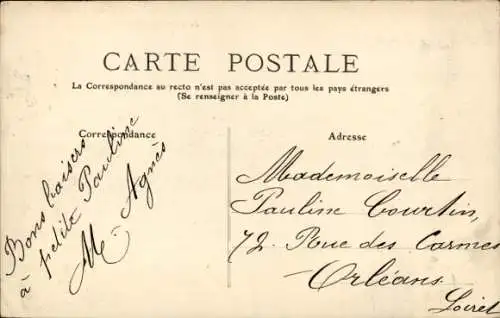 CARTE POSTALE
La Correspondance au recto n'est pas acceptée par tous les pays étrangers
(Se renseigner à la Poste)
Correspondance
Adresse
Bons baisers
à petite Pauline
M. Agnès
Mademoiselle
Pauline Courtin,
72, Rue des Carmes
Orléans
Loiret